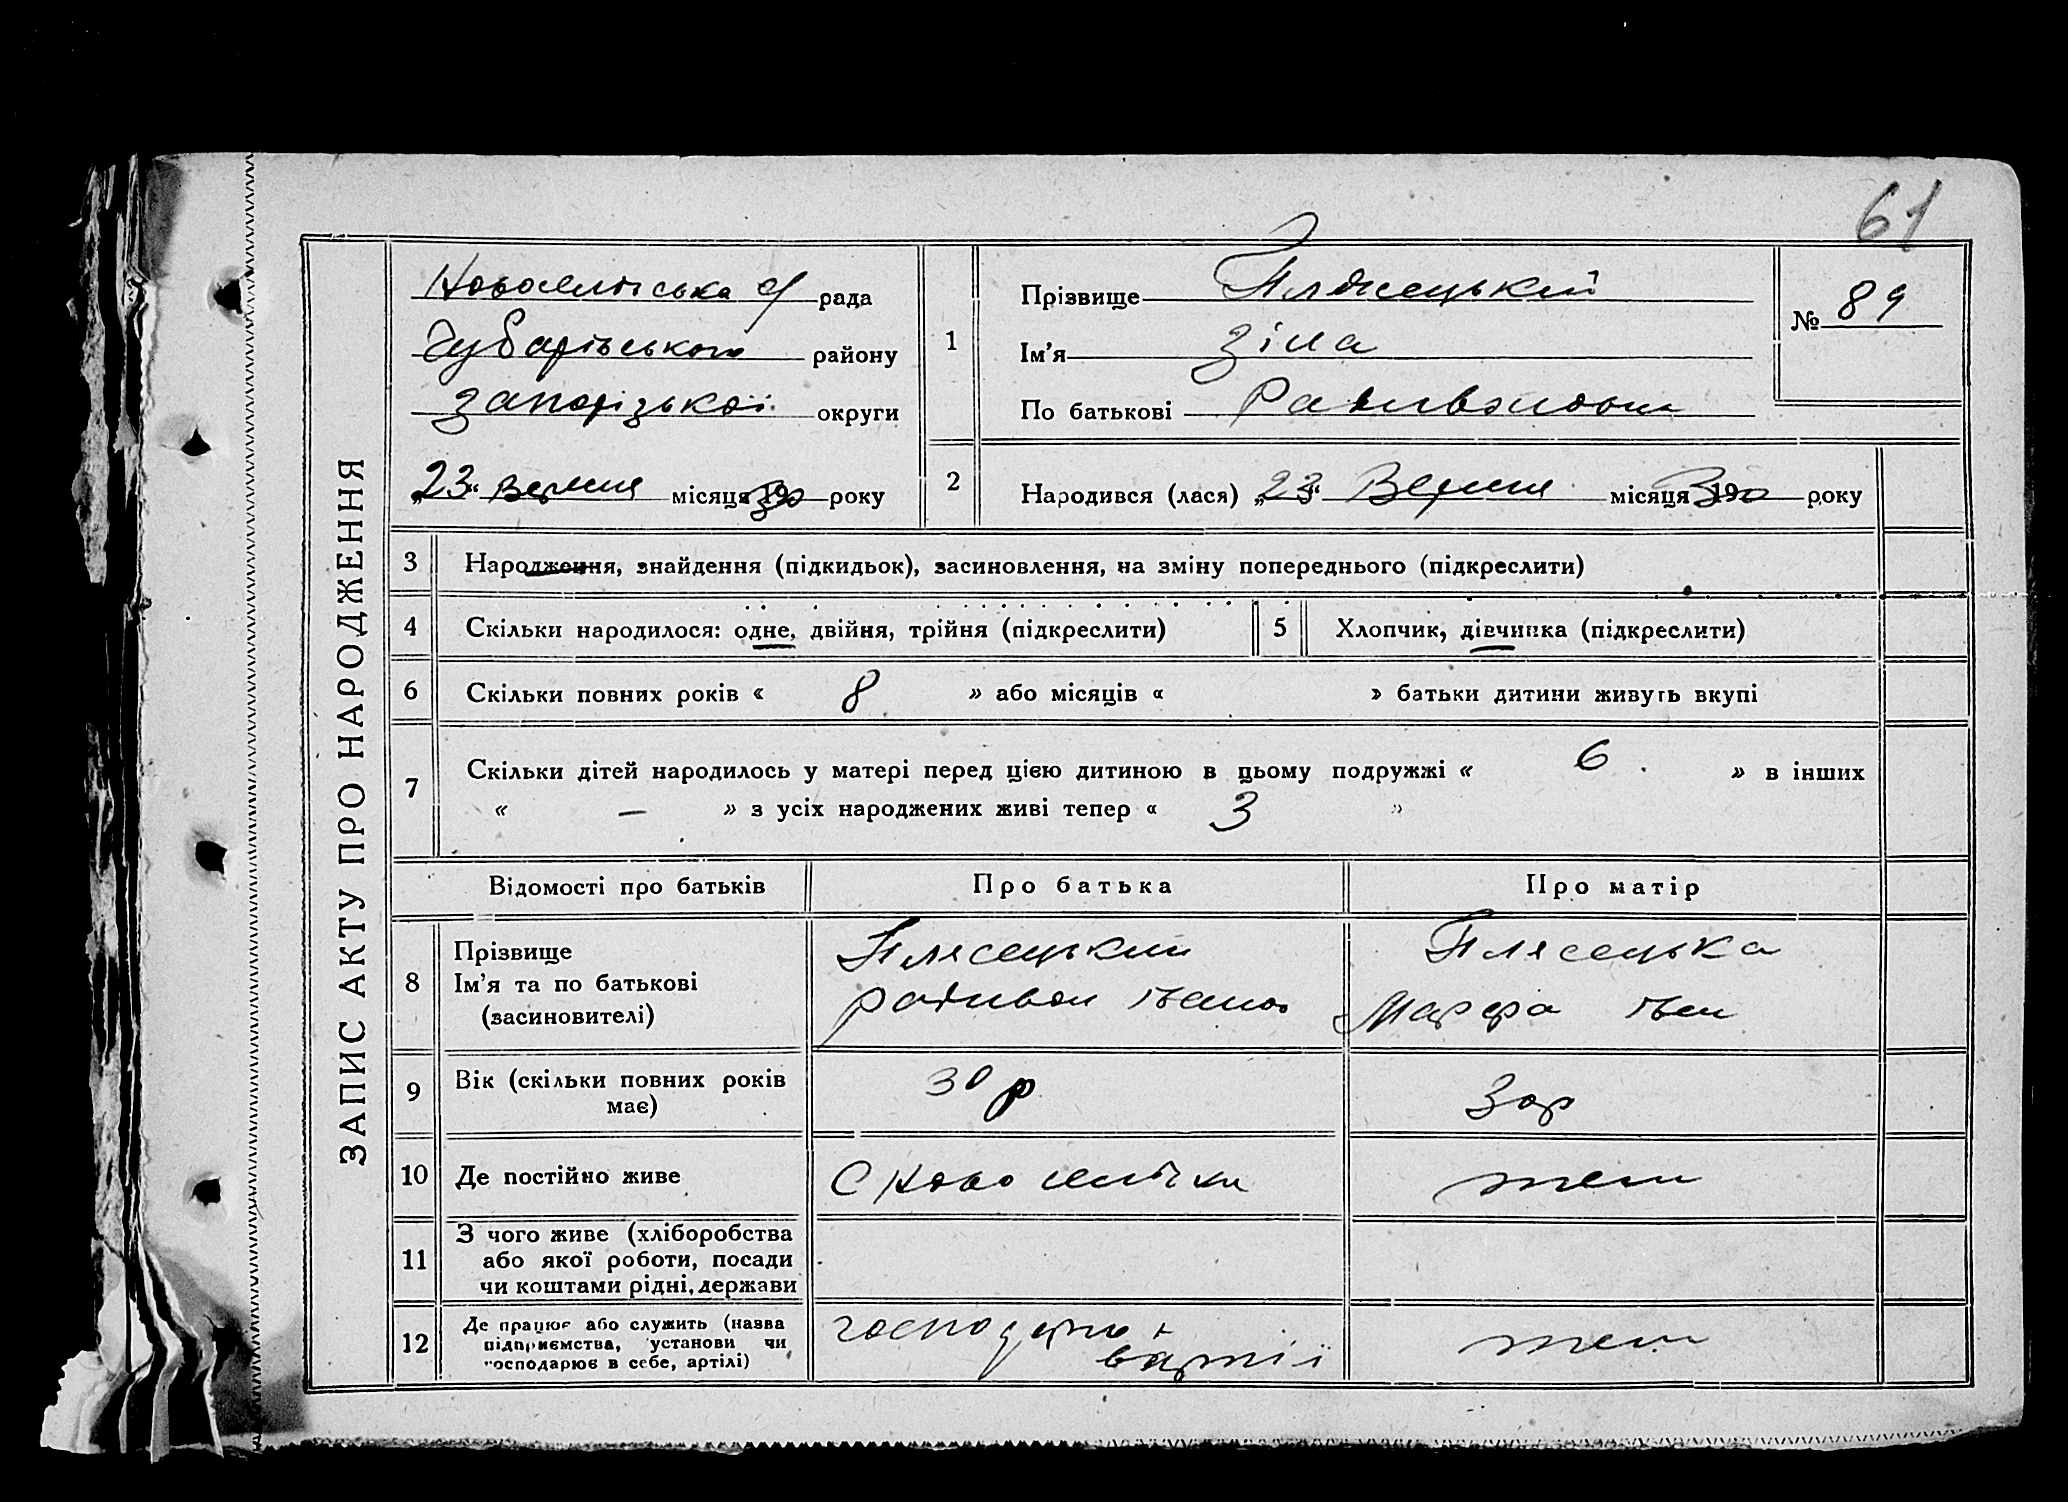 61
ЗАПИС АКТУ ПРО НАРОДЖЕННЯ
Новоселівська с/ рада
Чубарівського району
Запорізької округи
„23“ Вересня місяця 1930 року
1
Прізвище Плясецький
Ім'я Зіна
По батькові Родивоновна
№ 89
2
Народився (лася) „23“ Вересня місяця 1930 року
3 Народження, знайдення (підкидьок), засиновлення, на зміну попереднього (підкреслити)
4 Скільки народилося: одне, двійня, трійня (підкреслити)
5 Хлопчик, дівчинка (підкреслити)
6 Скільки повних років « 8 » або місяців « » батьки дитини живуть вкупі
7 Скільки дітей народилось у матері перед цією дитиною в цьому подружжі « 6 » в інших
« — » з усіх народжених живі тепер « 3 »
Відомості про батьків Про батька Про матір
8 Прізвище
Ім'я та по батькові
(засиновителі)
Плясецький
Родивон Іванов
Плясецька
Марфа Іван
9 Вік (скільки повних років
має)
30 р
30р
10 Де постійно живе
С Новоселівка
теж
11 З чого живе (хліборобства
або якої роботи, посади
чи коштами рідні, держави
12 Де працює або служить (назва
підприємства, установи чи
господарює в себе, артілі)
в артілі
теж